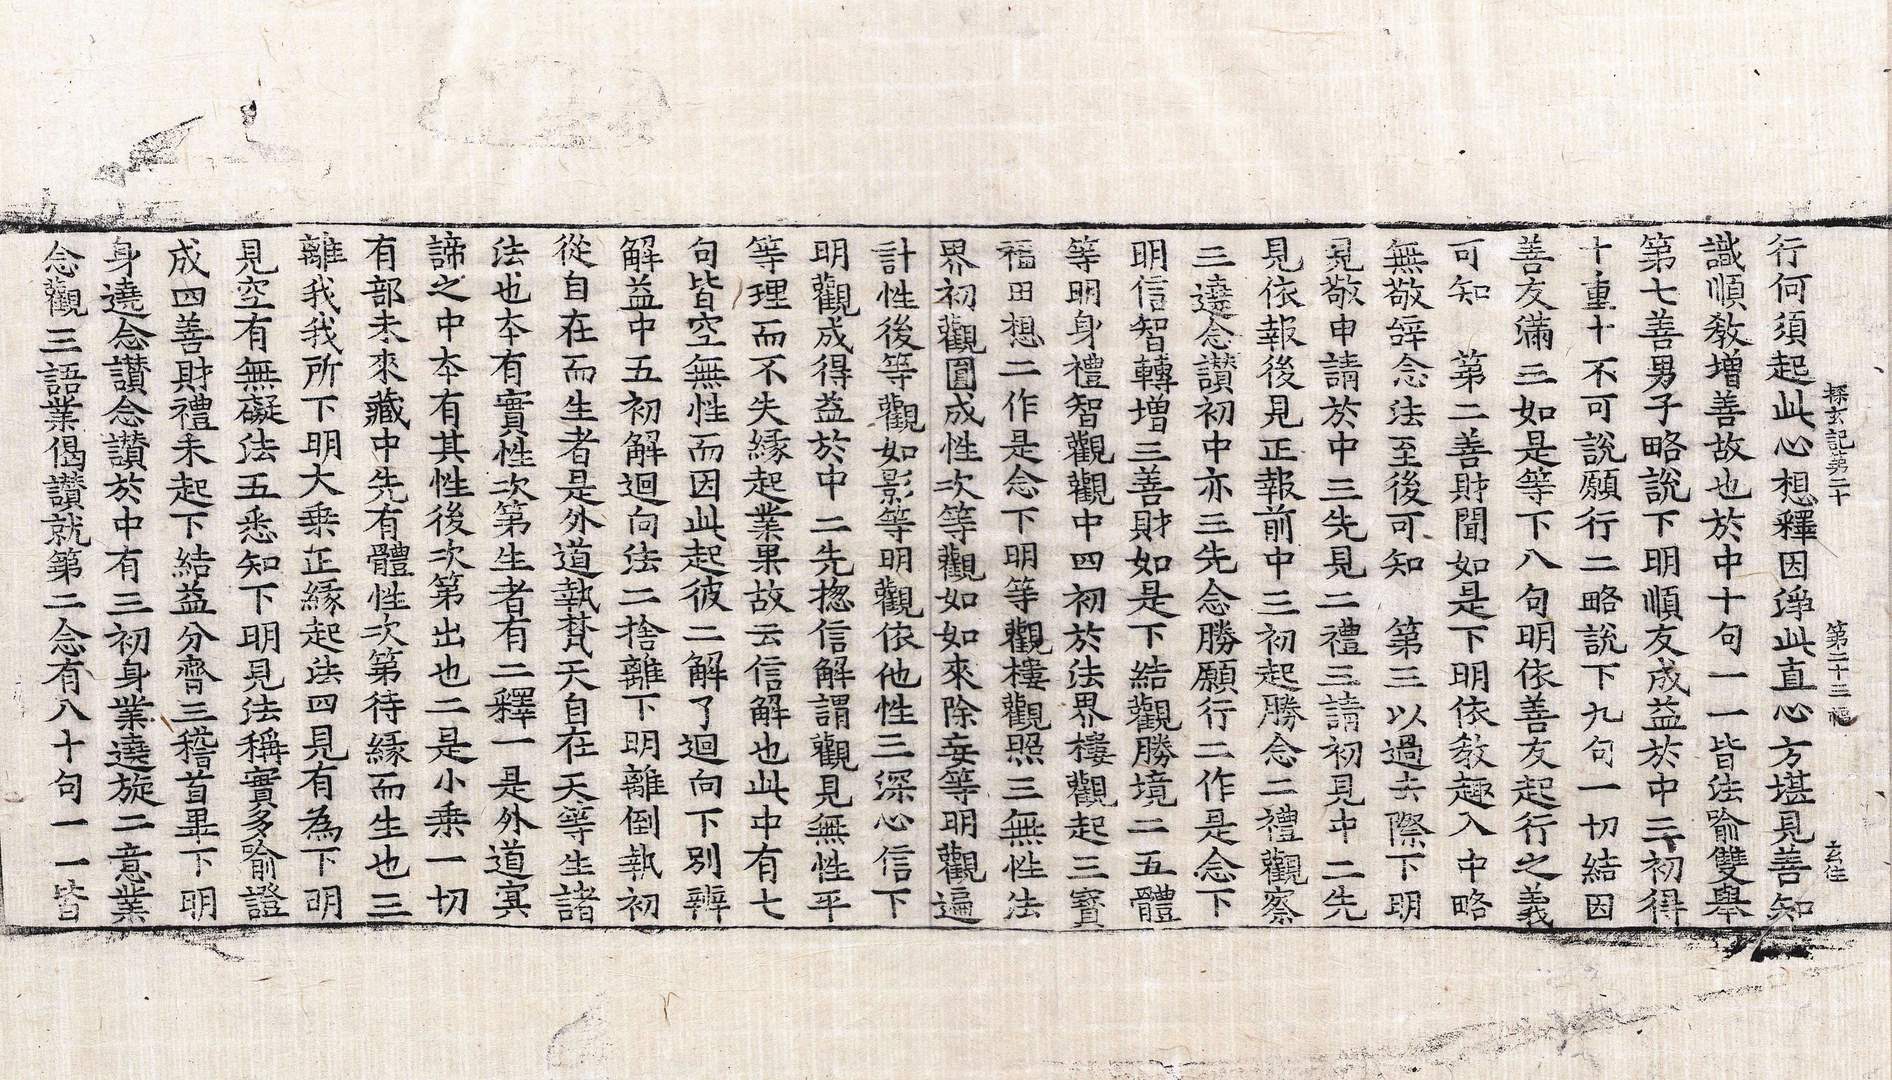 探玄記第二十　第二十三幅　玄佳
行何須起此心想釋因諍此直心方堪見善知
識順敎增善故也於中十句一一皆法喻雙舉
第七善男子略說下明順友成益於中三初得
十重十不可說願行二略說下九句一切結因
善友滿三如是等下八句明依善友起行之義
可知　第二善財聞如是下明依敎趣入中略
無敬辝念法至後可知　第三以過去際下明
見敬申請於中三先見二禮三請初見中二先
見依報後見正報前中三初起勝念二禮觀察
三遶念讃初中亦三先念勝願行二作是念下
明信智轉增三善財如是下結觀勝境二五體
等明身禮智觀觀中四初於法界樓觀起三寳
福田想二作是念下明等觀樓觀照三無性法
界初觀圎成性次等觀如如來除妄等明觀遍
計性後等觀如影等明觀依他性三深心信下
明觀成得益於中二先揔信解謂觀見無性平
等理而不失緣起業果故云信解也此中有七
句皆空無性而因此起彼二解了迴向下別辨
解益中五初解迴向法二捨離下明離倒執初
從自在而生者是外道執梵天自在天等生諸
法也夲有實性次第生者有二釋一是外道㝠
諦之中夲有其性後次第出也二是小乗一切
有部未來藏中先有體性次第待緣而生也三
離我我所下明大乗正緣起法四見有為下明
見空有無礙法五悉知下明見法稱實多喻證
成四善財禮未起下結益分齊三稽首畢下明
身遶念讃念讃於中有三初身業遶旋二意業
念觀三語業偈讃就第二念有八十句一一皆